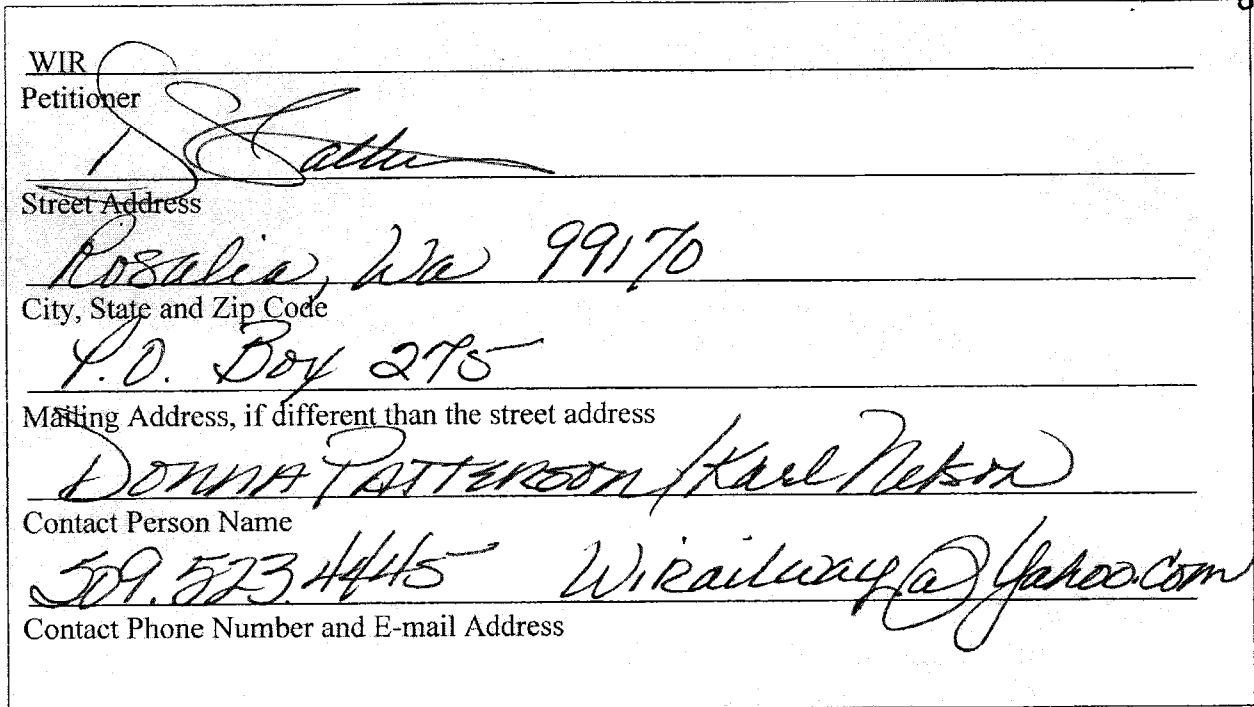 WIR
Petitioner
Street Address
Rosalia, Wa 99170
City, State and Zip Code
P.O. Box 275
Mailing Address, if different than the street address
Donna Patterson / Karl Nelson
Contact Person Name
509.523.4445 Wirailway@yahoo.com
Contact Phone Number and E-mail Address